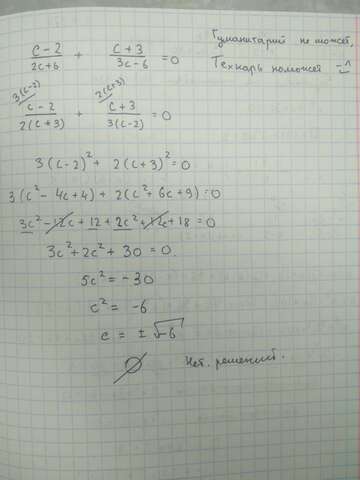 (c-2)/(2c+6) + (c+3)/(3c-6) = 0
Гуманитарий не может,
Технарь поможет -^
3(c-2) 2(c+3)
(c-2)/(2(c+3)) + (c+3)/(3(c-2)) = 0
3(c-2)² + 2(c+3)² = 0
3(c² - 4c + 4) + 2(c² + 6c + 9) = 0
3c² - 12c + 12 + 2c² + 12c + 18 = 0
3c² + 2c² + 30 = 0.
5c² = -30
c² = -6
c = ±√-6
∅ Нет. решений.